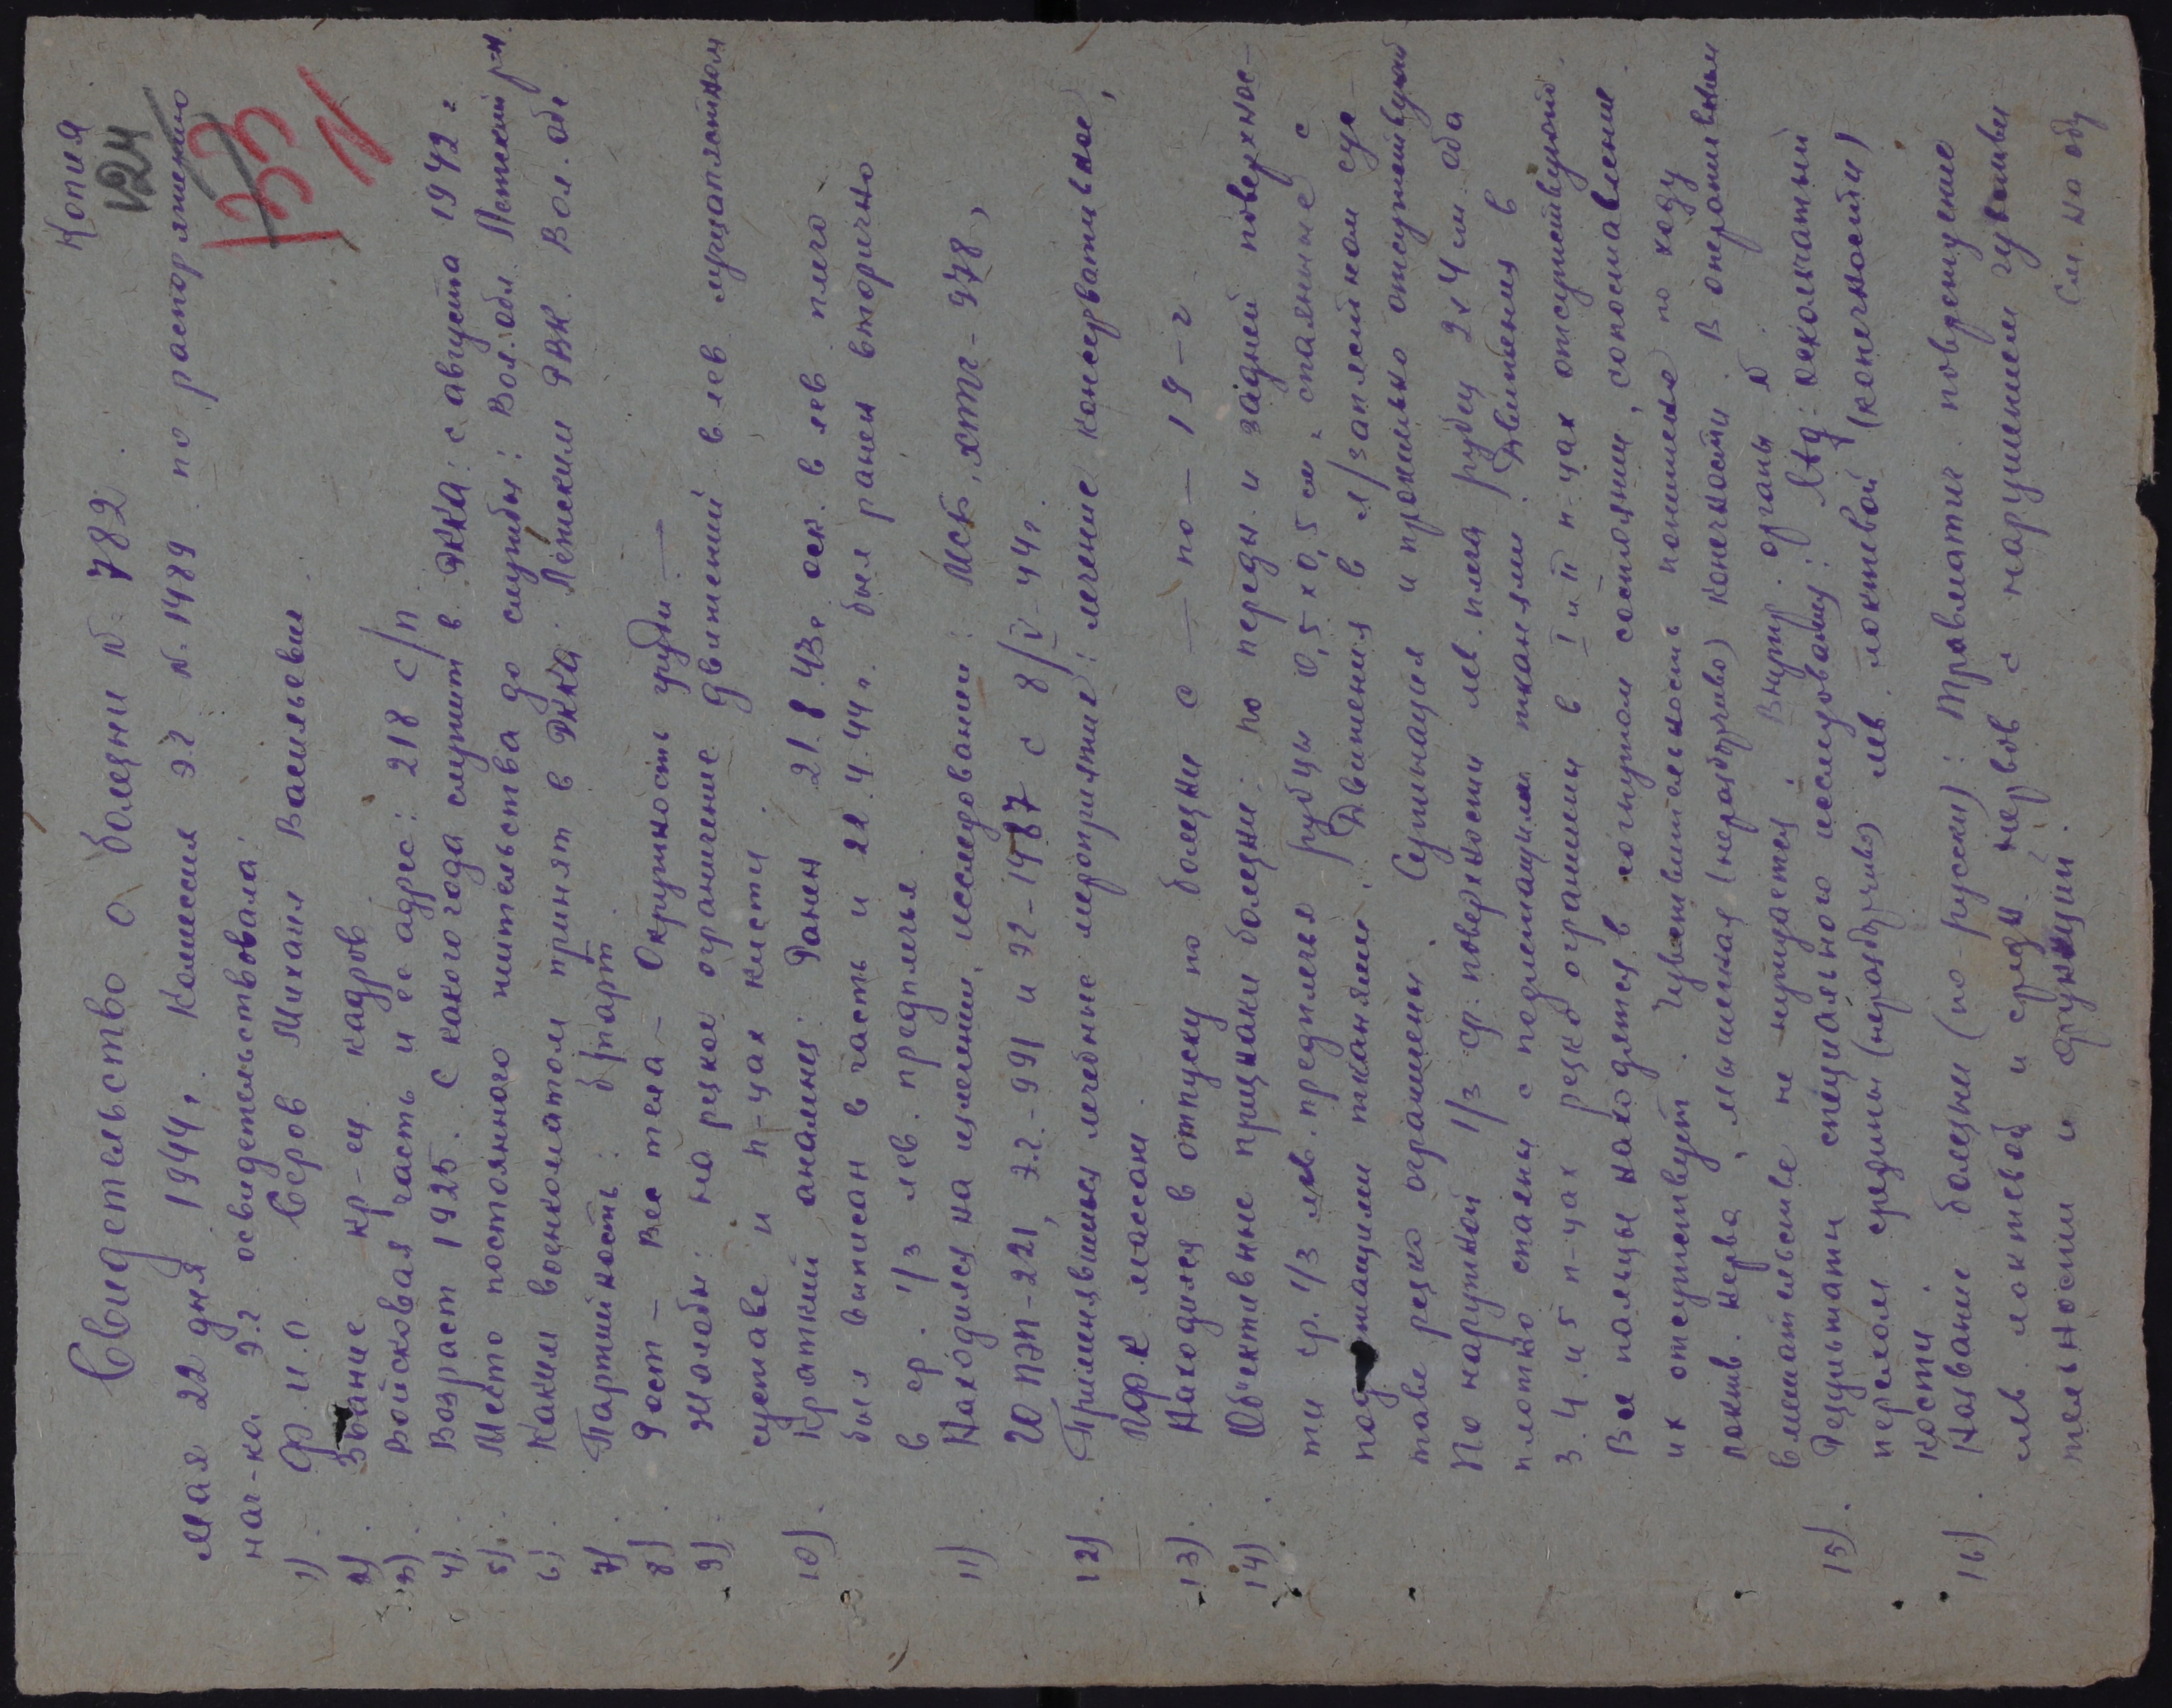 Копия
124
133
1
Свидетельство о болезни №. 782.
Мая 22 дня 1944 г. Комиссия эг №. 1489 по распоряжению
нач-ка эг освидетельствовала:
1). Ф.и.о. Серов Михаил Васильевич.
2). Звание кр-ец кадров
3). Войсковая часть и ее адрес: 218 с/п.
4). Возраст 1925. С какого года служит в РККА: с августа 1942 г
5). Место постоянного жительства до службы: Вол. обл. Лежский р-н.
6). Каким военкоматом принят в РККА: Лежским РВК. Вол. обл
7). Партийность: б/парт.
8). Рост – Вес тела – Окружность груди —
9) Жалобы: на резкое ограничение движений в лев лучезапястном
суставе и п-цах кисти.
10). Краткий анамнез: Ранен 21.8.43г оск. в лев плечо
был выписан в часть и 22.4.44 г. был ранен вторично
в ср. 1/3 лев. предплечья
11) Находился на излечении, исследовании: МСБ, ХППГ - 978,
ГО ПЭП-221, Э.Г.-991 и ЭГ-1487 с 8/V-44 г.
12). Применявшиеся лечебные мероприятия: лечение консервативное,
ЛФК массаж.
13). Находился в отпуску по болезни с — по — 19 – г
14). Объективные признаки болезни: по передн. и задней поверхнос-
ти ср. 1/3 лев. предплечья рубцы 0,5 x 0,5 см. спаянные с
подлежащими тканями. Движения в л/запястном сус-
таве резко ограничены. Супинация и пронация отсутствуют
По наружной 1/3 ср. поверхности лев. плеча рубец 2x4 см. оба
плотно спаяны с подлежащими тканями. Движения в
3.4. и 5 п-цах резко ограничены в I и II п-цах отсутствуют.
Все пальцы находятся в согнутом состоянии, сопоставление
их отсутствует. Чувствительность понижена по ходу
локтев. нерва, мышечная (неразборчиво) конечности. В оперативном
вмешательстве не нуждается. Внутр. органы N
15). Результаты специального исследования: Rtg: оскольчатый
перелом средины (неразборчиво) лев локтевой (конечности)
кости.
16). Название болезни (по-русски): Травматич. повреждение
лев локтевой и средн. нервов с нарушением чувстви
тельности и функций. См. на об.